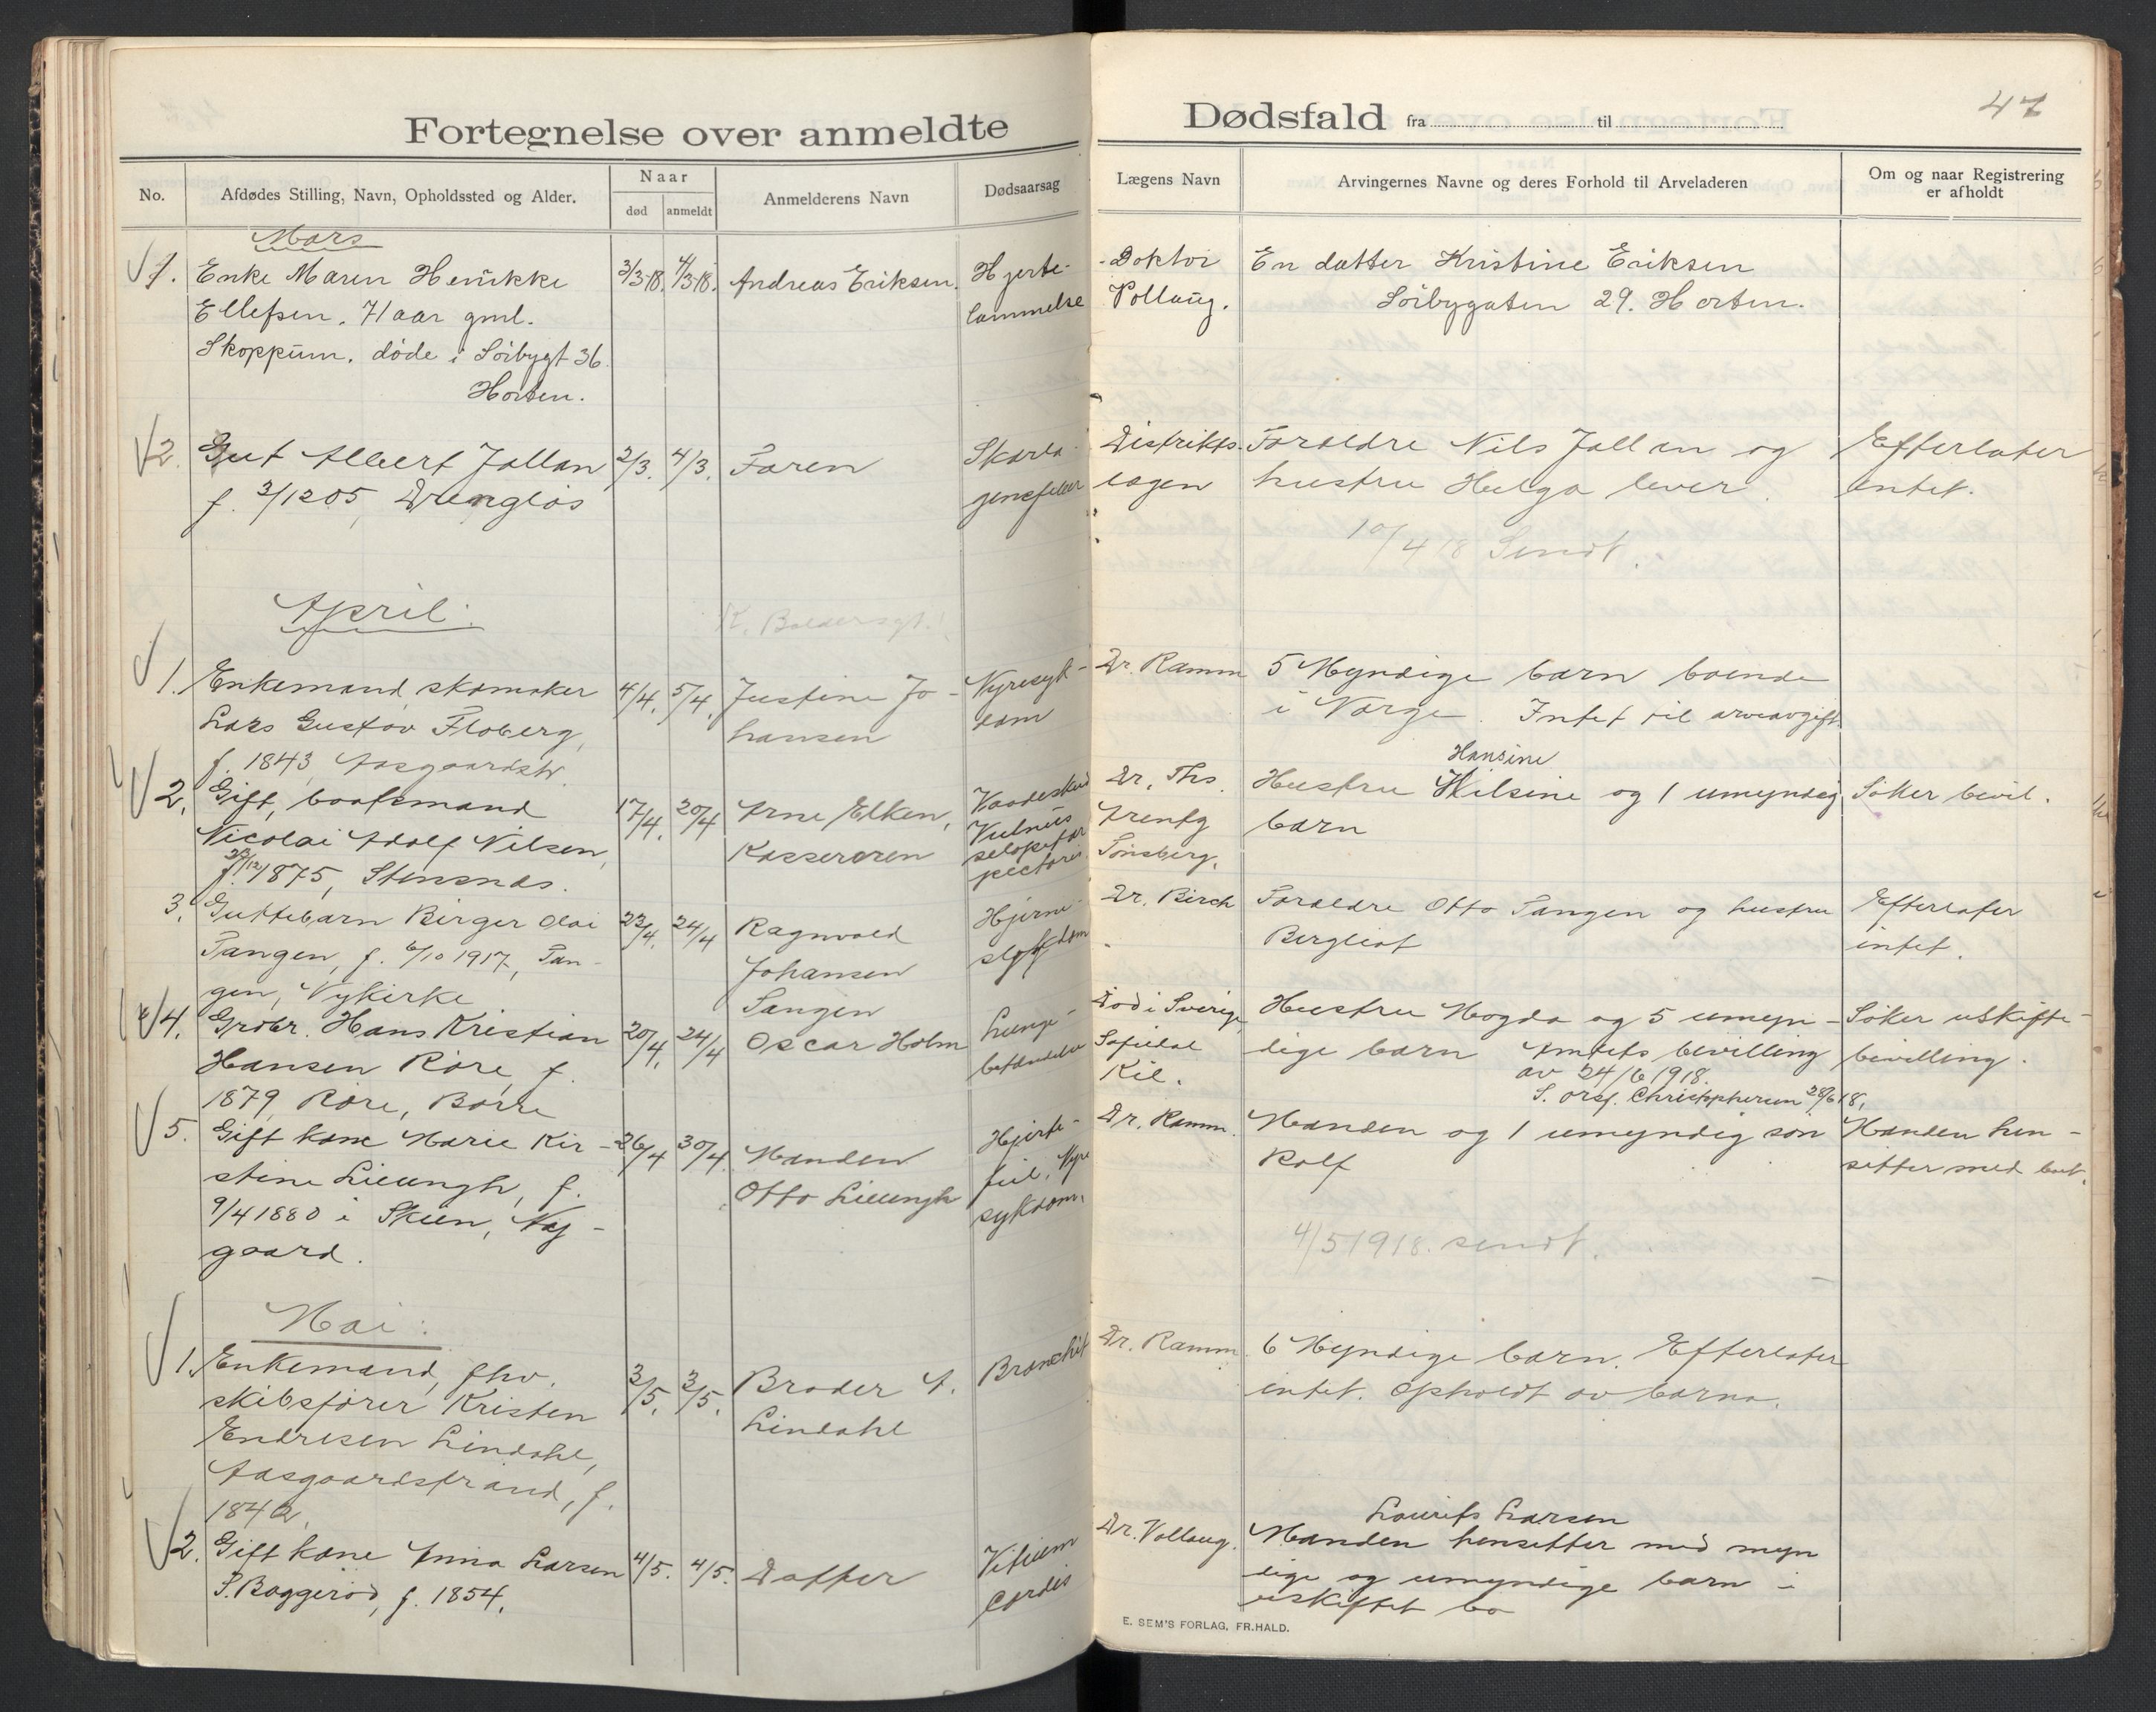 Fortegnelse over anmeldte Dødsfald fra til
47
No.
Afdødes Stilling, Navn, Opholdssted og Alder.
Naar
død anmeldt
Anmelderens Navn
Dødsaarsag
Lægens Navn
Arvingernes Navne og deres Forhold til Arveladeren
Om og naar Registrering
er afholdt
Mars
1. Enke Maren Henrikke
Ellefsen. 71 aar gml.
Skoppum. døde i Sörbygt 36
Horten.
3/3-18. 4/3-18.
Andreas Eriksen.
Hjerte-
lammelse
Doktor
Vollaug.
En datter Kristine Eriksen
Sörbygaten 29. Horten.
2. Gut Albert Jallan
f. 3/12 05,
2/3. 4/3.
Faren
Skarla-
gensfeber
Distrikts-
lægen
Forældre Nils Jallan og
hustru Helga lever.
Efterlater
intet.
10/4 18 Sendt.
April.
K. Baldersgt.
1. Enkemand, skomaker
Lars Gustav Floberg,
f. 1843, Aasgaardstr.
4/4. 5/4.
Justine Jo-
hansen
Nyresyk-
dom
Dr. Ramm
5 Myndige barn boende
i Norge. Intet til arveavgift.
2. Gift, baatsmand
Nicolai Adolf Nilsen,
1875, Stensnes.
17/4. 20/4
Arne Elken,
Kassereren
Vaadeskud
Vulnus
selopetar
pectoris.
Dr. Ths.
Arentz
Tönsberg.
Hansine
Hustru Hilsine og 1 umyndig
barn
Söker bevil.
3. Guttebarn Birger Olai
Tangen, f. 6/10 1917, Tan-
gen, Nykirke
23/4. 24/4
Ragnvald
Johansen
Tangen
Hjerne-
sykdom
Dr. Birch
Forældre Otto Tangen og hustru
Bergliot
Efterlater
intet.
4. Grdbr. Hans Kristian
Hansen Röre, f.
1879, Röre, Borre
20/4. 24/4
Oscar Holm
Lunge-
betændelse
Död i Sverige,
Kil.
Hustru Magda og 5 umyn-
dige barn Amtets bevilling
av 24/6 1918.
S. orsf. Christophersen 28/6 18.
Söker uskifte-
bevilling.
5. Gift kone Marie Kir-
stine Liuungh, f.
9/4 1880 i Skien, Ny-
gaard.
26/4 30/4
Manden
Otto Liuungh
Hjerte-
feil, Nyre
sykdom.
Dr. Ramm.
Manden og 1 umyndig son
Rolf
Manden hen-
sitter med boet.
4/5 1918. sendt.
Mai:
1. Enkemand, fhv.
skibsförer Kristen
Endresen Lindahl,
Aasgaardstrand, f.
1842,
3/5. 3/5.
Broder A.
Lindahl
Bronchit
Dr. Ramm
6 Myndige barn. Efterlater
intet. Opholdt av barna.
2. Gift kone Anna Larsen
S. Baggeröd, f. 1854.
4/5. 4/5.
Datter
Vitium
cordis
Dr. Vollaug.
Laurits Larsen
Manden hensitter med myn
dige og umyndige barn i
uskiftet bo
E. SEM'S FORLAG, FR.HALD.